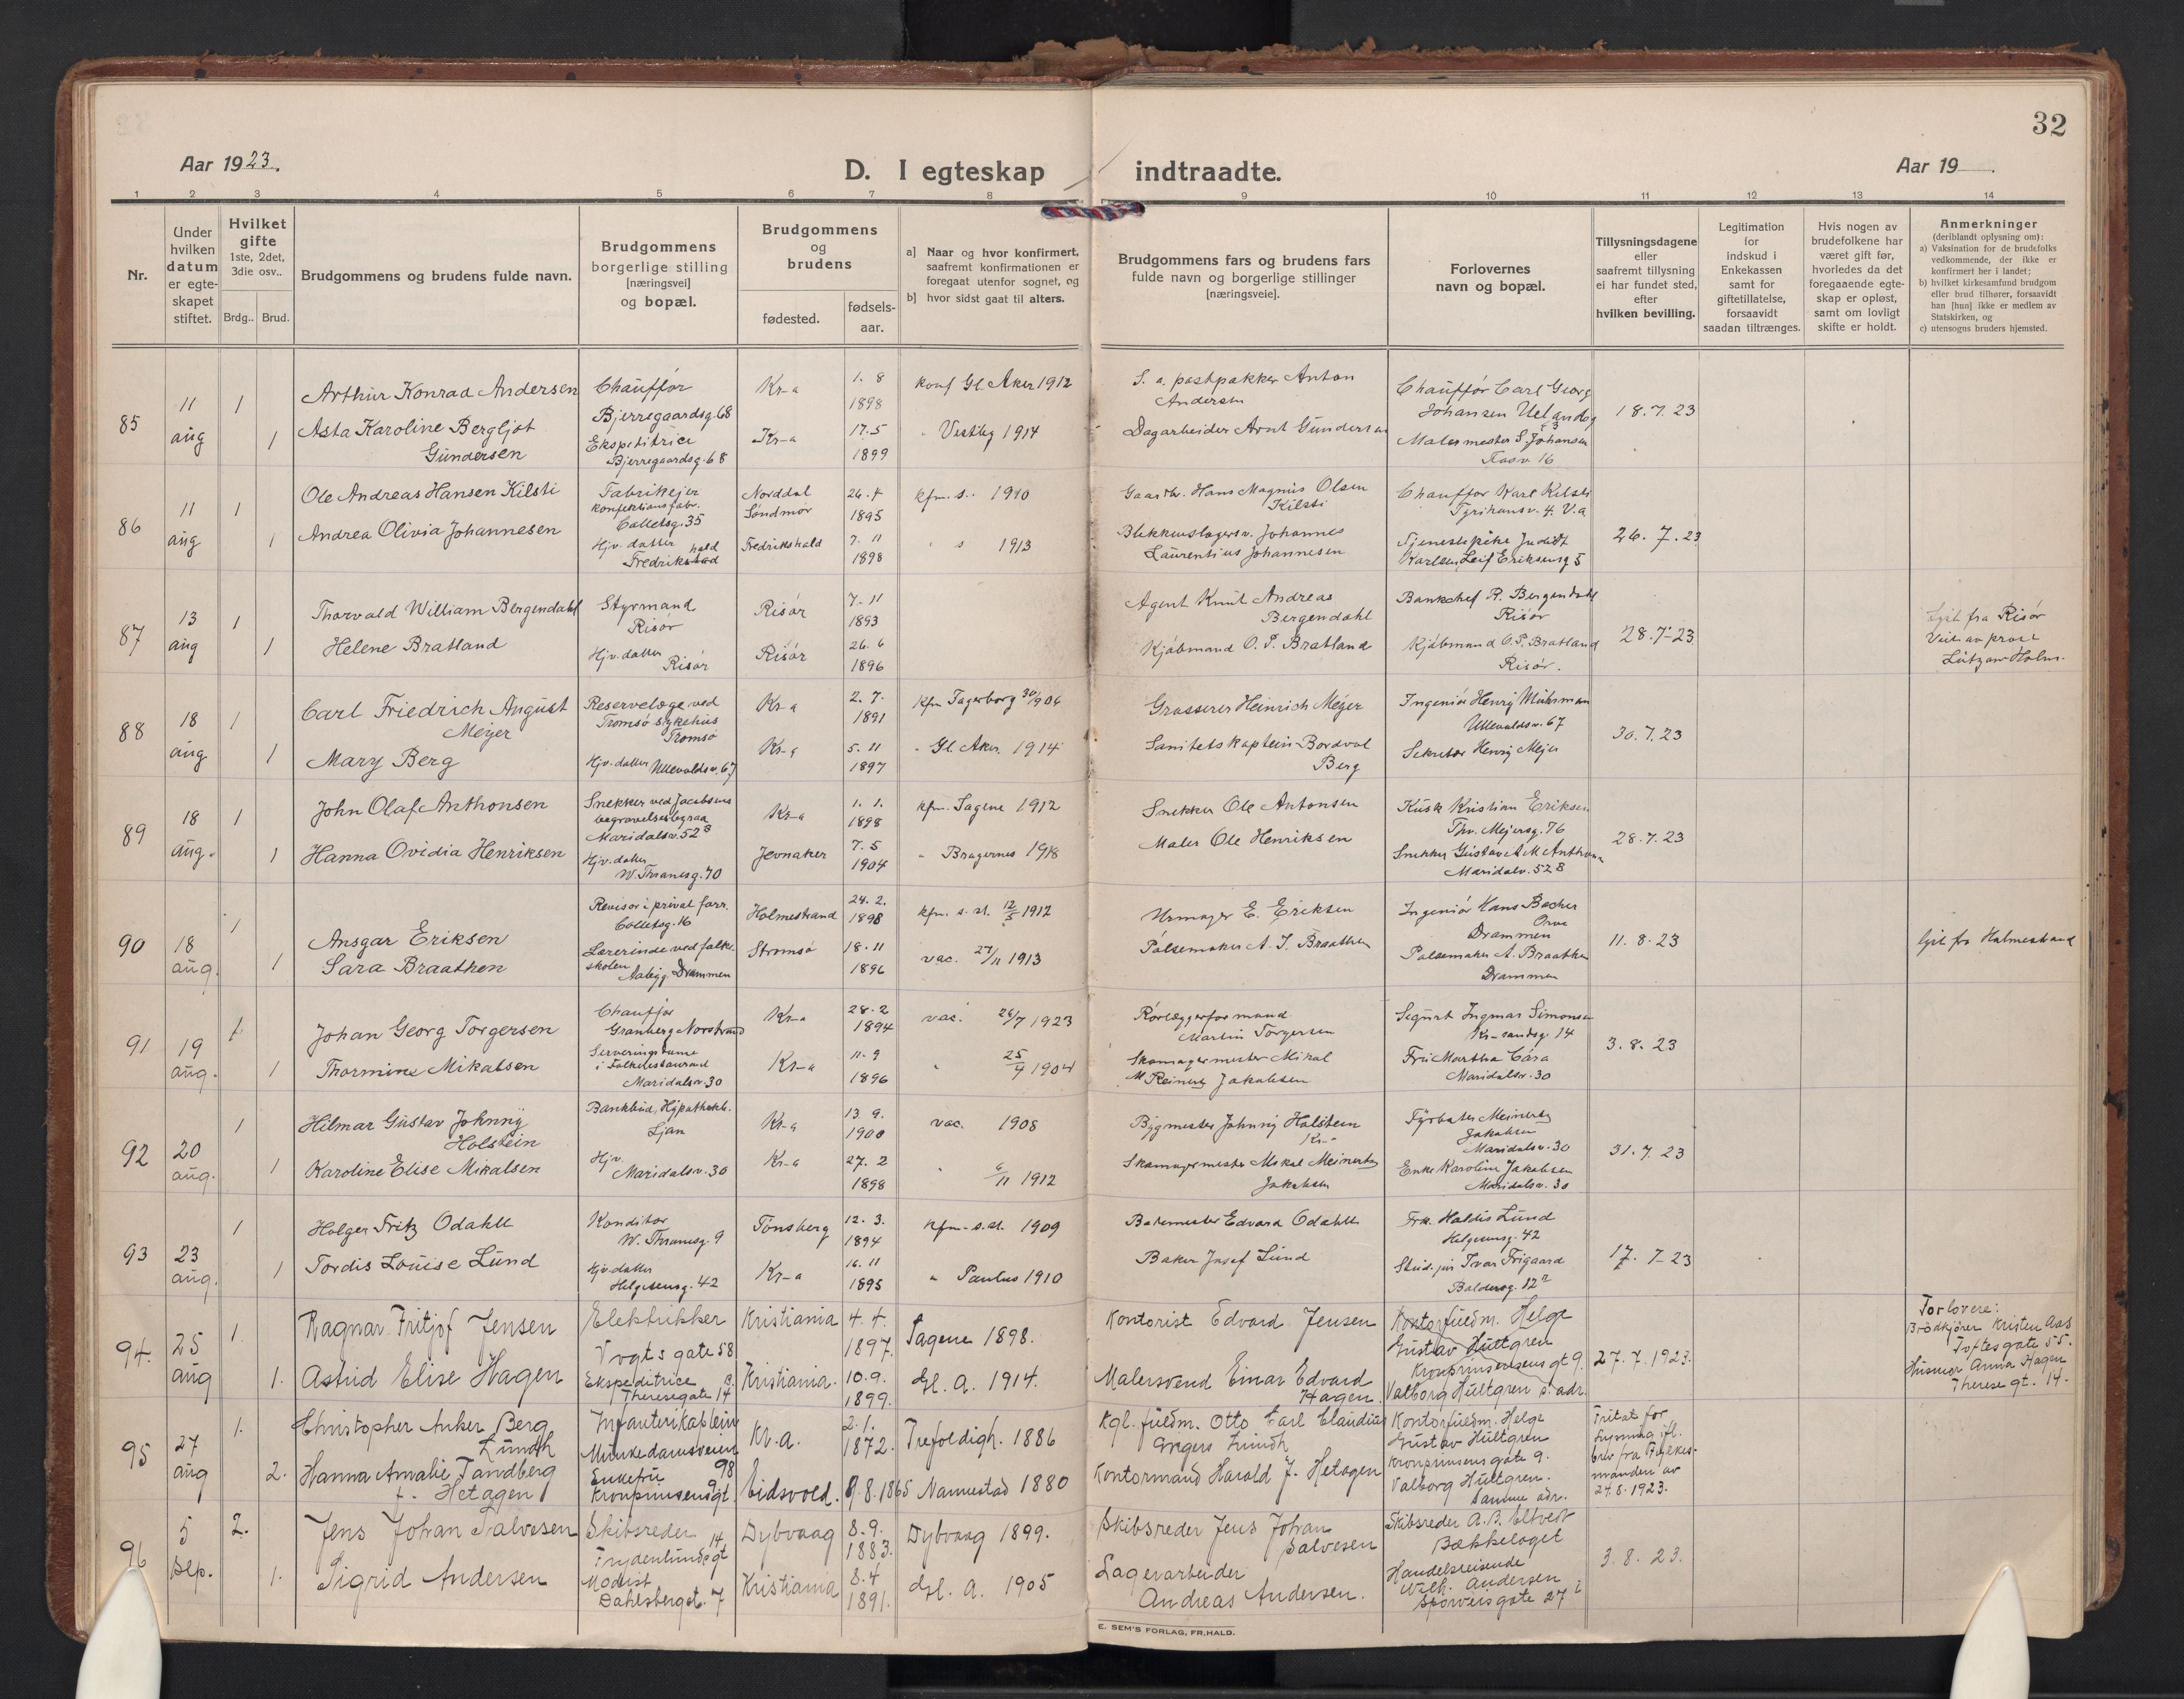 32
Aar 1923.
D. I egteskap indtraadte.
Aar 19
1 2 3 4 5 6 7 8 9 10 11 12 13 14
Nr.
Under hvilken datum er egte-skapet stiftet.
Hvilket gifte
1ste, 2det, 3die osv..
Brdg.. Brud.
Brudgommens og brudens fulde navn.
Brudgommens borgerlige stilling [næringsvei] og bopæl.
Brudgommens og brudens
fødested.
fødsels-aar.
a] Naar og hvor konfirmert, saafremt konfirmationen er foregaat utenfor sognet, og
b] hvor sidst gaat til alters.
Brudgommens fars og brudens fars fulde navn og borgerlige stillinger [næringsveie].
Forlovernes navn og bopæl.
Tillysningsdagene eller saafremt tillysning ei har fundet sted, efter hvilken bevilling.
Legitimation for indskud i Enkekassen samt for giftetillatelse, forsaavidt saadan tiltrænges.
Hvis nogen av brudefolkene har været gift før, hvorledes da det foregaaende egte-skap er opløst, samt om lovligt skifte er holdt.
Anmerkninger
(deriblandt oplysning om):
a) Vaksination for de brudefolks vedkommende, der ikke er konfirmert her i landet;
b) hvilket kirkesamfund brudgom eller brud tilhører, forsaavidt han [hun] ikke er medlem av Statskirken, og
c) utensogns bruders hjemsted.
85
11 aug
1
1
Arthur Konrad Andersen
Asta Karoline Bergljot
Gundersen
Chauffør
Bjerregaardsg. 68
Ekspeditrice
Bjerregaardsg. 68
Kr-a
Kr-a
1. 8
1898
17.5
1899
konf Gl. Aker 1912
" Vestby 1914
S. a. postpakker Anton
Andersen
Dagarbeider Arnt Gundersen
Chauffør Carl Georg
Johansen
Malermester S. Johansen
18.7.23
86
11 aug
1
1
Ole Andreas Hansen Kilsti
Andrea Olivia Johannesen
Fabrikejer
konfektionsfabr.
Colletsg. 35
Hjv. datter
Fredrikshald
Norddal
Søndmør
Fredrikshald
26.4
1895
7. 11
1898
kfm. s.. 1910
" s 1913
Gaardbr. Hans Magnus Olsen
Kilsti
Blikkenslagersv. Johannes
Laurentius Johannesen
Chauffør Karl Kilsti
Tyrihansv. 4. V.a
Tjenestepike Judith
Karlsen, Leif Eriksensg 5
26.7.23
87
13 aug
1
1
Thorvald William Bergendahl
Helene Bratland
Styrmand
Risør
Hjv. datter
Risør
Risør
Risør
7-11
1893
26. 6
1896
Agent Knut Andreas
Bergendahl
Kjøbmand O. P. Bratland
Bankchef R. Bergendahl
Risør
Kjøbmand O. P. Bratland
Risør.
28.7-23
lyst fra Risør
Viet av prost
Lützow Holm.
88
18 aug
1
1
Carl Friedrich August
Meyer
Mary Berg
Reservelæge ved
Tromsø sykehus
Tromsø
Hjv. datter Ullevoldsv. 67
Kr-a
Kr-a
2. 7.
1891
5. 11
1897
kfm Fagerborg
" Gl. Aker. 1914
Grosserer Heinrich Meyer
Sanitetskaptein Bordvol
Berg
Ingeniør Henry
Ullevoldsv. 67
Sekretær Henry Meyer
30.7.23
89
18 aug.
1
1
John Olaf Anthonsen
Hanna Ovidia Henriksen
Snekker ved Jacobsens
begravelsesbyraa
Maridalsv. 52 B
Hjv. datter
W. Thranesg. 70
Kr-a
Jevnaker
1. 1.
1898
7. 5
1904
kfm. Sagene 1912
" Bragernes 1918
Snekker Ole Antonsen
Maler Ole Henriksen
Kusk Kristian Eriksen
Thv. Meyersg. 76
Snekker Gustav A M Anthonsen
Maridalsv. 52 B
28.7.23
90
18 aug.
1
1
Ansgar Eriksen
Sara Braathen
Revisor i privat forr.
Colletsg. 16
Lærerinde ved folke-
skolen
Drammen
Holmestrand
Strømsø
24. 2.
1898
18-11
1896
kfm. s. st. 12/5 1912
vac. 27/11 1913
Urmager E. Eriksen
Pølsemaker A. J. Braathen
Ingeniør Hans Bacher
Drammen
Pølsemaker A. Braathen
Drammen
11. 8. 23
lyst fra Holmestrand
91
19 aug.
1
1
Johan Georg Torgersen
Thormine Mikalsen
Chauffør
Granberg Norstrand
Serveringsdame
i Folkerestaurant
Maridalsv. 30
Kr-a
Kr-a
28. 2
1894
11. 9
1896
vac. 26/7 1923
" 25/9 1904
Rørlæggerformand
Martin Torgersen
Skomagermester Mikal
M Reinertz Jakobsen
Sigurt Ingmar Simonsen
Kr-sandsg. 14
Fru Martha Cara
Maridalsv. 30
3. 8. 23
92
20 aug.
1
1
Hilmar Gustav Johnny
Holstein
Karoline Elise Mikalsen
Bankbud, Hypothekb.
Ljan
Hjv
Maridalsv. 30
Kr-a
Kr-a
13. 9.
1900
27. 2
1898
vac. 1908
" 6/11 1912
Bygmester Johnny Holstein
Kr-
Skomagermester Mikal Meinertz
Jakobsen
Fyrbøter Meinertz
Jakobsen
Maridalsv. 30
Enke Karoline Jakobsen
Maridalsv. 30
31. 7. 23
93
23 aug.
1
1
Holger Fritz Odahll
Tordis Louise Lund
Konditor
W. Thranesg. 9
Hjv. datter
Helgesensg. 42
Tønsberg
Kr-a
12. 3.
1894
16. 11
1895
kfm. s. st. 1909
" Paulus 1910
Bakermester Edvard Odahll
Baker Josef Lund
Frk. Haldis Lund
Helgesensg. 42
Stud. jur Ivar Frigaard
Baldersg. 12
17. 7-23
94.
25 aug
1.
1.
Ragnar Fritjof Jensen
Astrid Elise Hagen
Elektrikker
Vogtsgate 58
Ekspeditrice
Theresegate 14
Kristiania
Kristiania.
4. 4.
1897.
10.9.
1899.
Sagene 1898.
Gl. A. 1914.
Kontorist Edvard Jensen
Malersvend Einar Edvard
Hagen.
Kontorfuldm. Helge
Gustav Hultgren
Kronprinsensgt 9.
Valborg Hultgren s. adr.
27.7.1923.
Forlovere:
Brødkjører Kristen Aas
Toftesgate 55.
Husmor Anna Hagen
Therese gt. 14.
95
27 aug
1.
2.
Christopher Anker Berg
Lundh
Hanna Amalie Tandberg
f. Hetagen
Infanterikaptein
Munkedamsveien
98
Enkefru
Kronprinsensgt. 9
Kr.a.
Eidsvold.
2.1.
1872.
9.8.1865
Trefoldigh. 1886
Nannestad 1880
Kgl. fuldm. Otto Carl Claudius
Gregers Lundh
Kontormand Harald J. Hetagen
Kontorfuldm. Helge
Gustav Hultgren
Kronprinsensgate 9.
Valborg Hultgren.
samme adr.
Fritat for
lysning ifl.
brev fra Fylkes-
manden av
24.8.1923.
96
5 sep.
2.
1.
Jens Johan Salvesen
Sigrid Andersen
Skibsreder
14
Frydenlundsgt
Modist
Dahlsbergst. 7
Dybvaag
Kristiania
8.9.
1883.
8.4
1891.
Dybvaag 1899.
Gl. A. 1905
Skibsreder Jens Johan
Salvesen
Lagerarbeider
Andreas Andersen.
Skibsreder A. B. Eltvedt
Bækkelaget
Handelsreisende
Wilh. Andersen
Sporveisgate 27
3. 8. 23.
E. SEM'S FORLAG, FR.HALD.